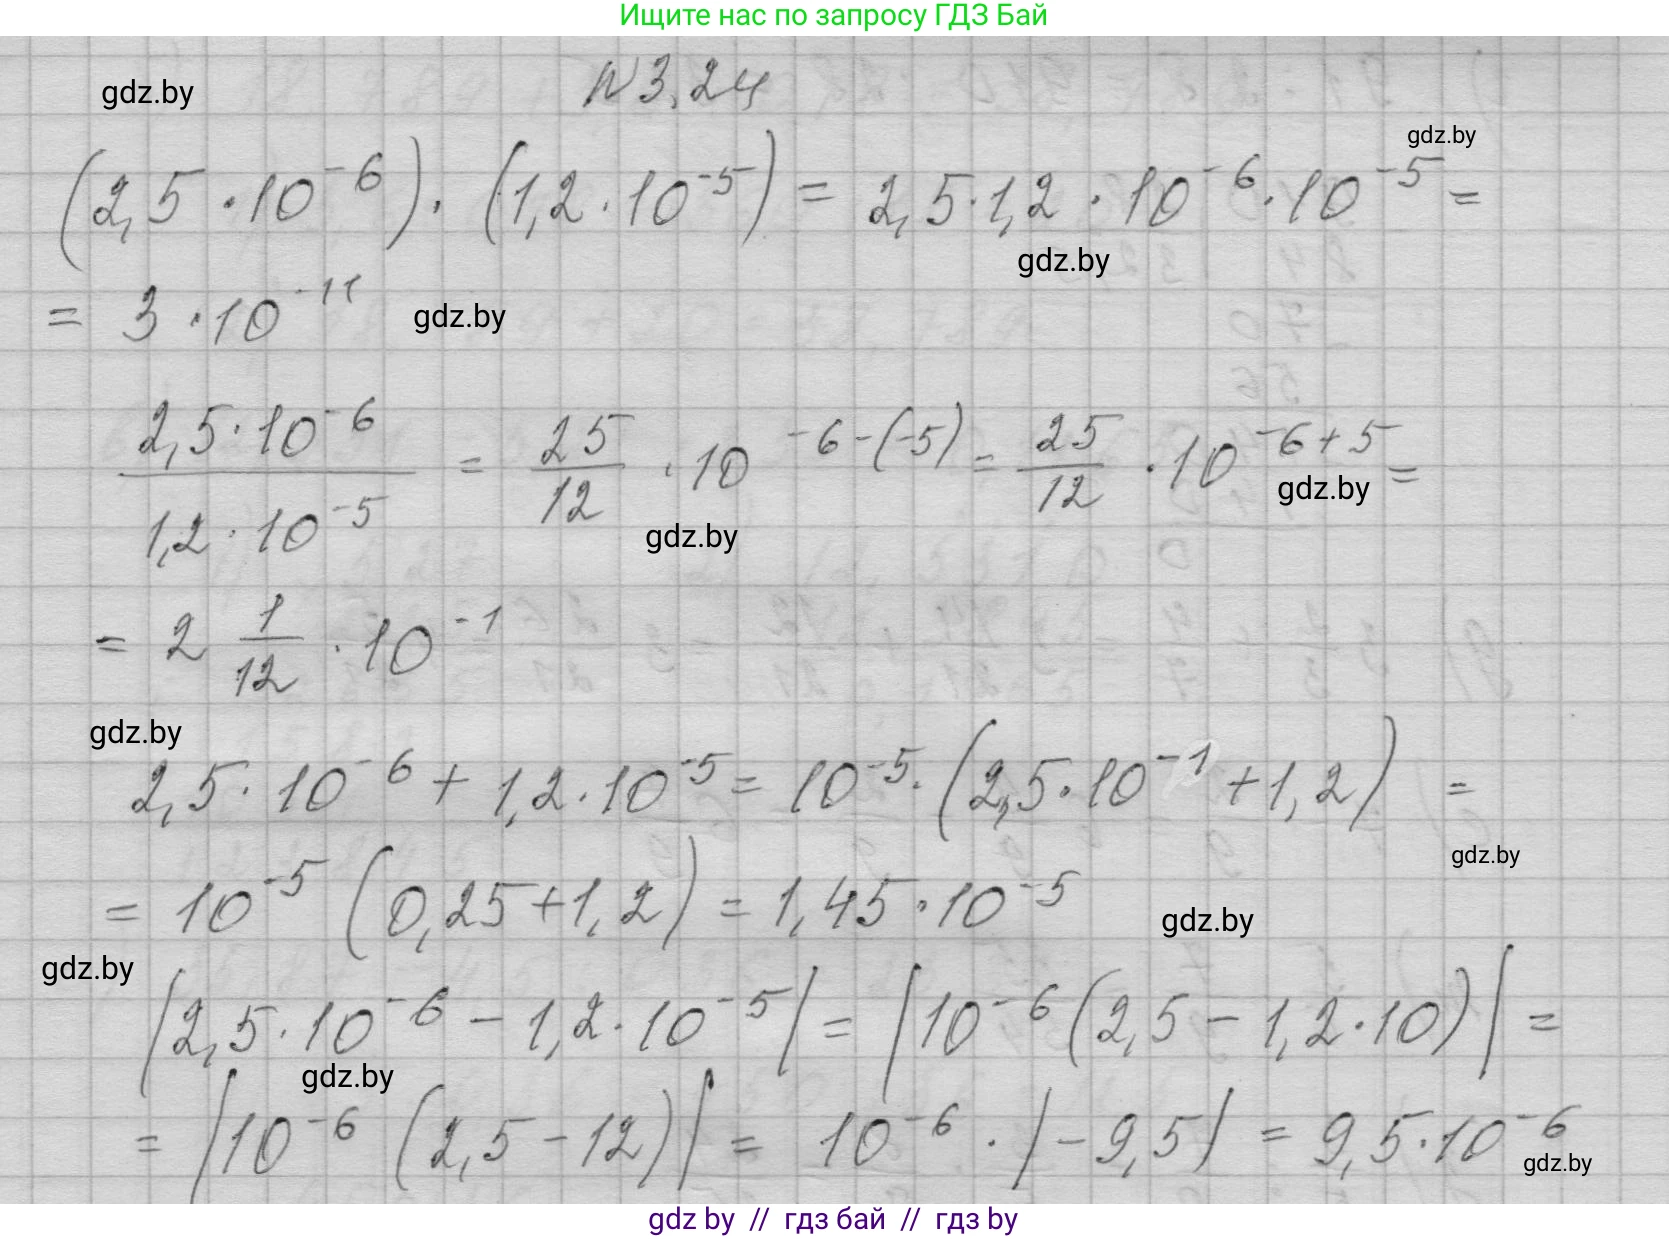 Ищите нас по запросу ГДЗ Бай
gdz.by
N3.24
gdz.by
(2,5 · 10⁻⁶) · (1,2 · 10⁻⁵) = 2,5 · 1,2 · 10⁻⁶ · 10⁻⁵ =
gdz.by
= 3 · 10⁻¹¹
gdz.by
2,5 · 10⁻⁶ / 1,2 · 10⁻⁵ = 25/12 · 10⁻⁶⁻⁽⁻⁵⁾ = 25/12 · 10⁻⁶⁺⁵ =
gdz.by
gdz.by
= 2 1/12 · 10⁻¹
gdz.by
2,5 · 10⁻⁶ + 1,2 · 10⁻⁵ = 10⁻⁵ · (2,5 · 10⁻¹ + 1,2) =
gdz.by
= 10⁻⁵ (0,25 + 1,2) = 1,45 · 10⁻⁵
gdz.by
gdz.by
|2,5 · 10⁻⁶ − 1,2 · 10⁻⁵| = |10⁻⁶ (2,5 − 1,2 · 10)| =
gdz.by
= |10⁻⁶ (2,5 − 12)| = 10⁻⁶ · |−9,5| = 9,5 · 10⁻⁶
gdz.by
gdz by // гдз бай // гдз by